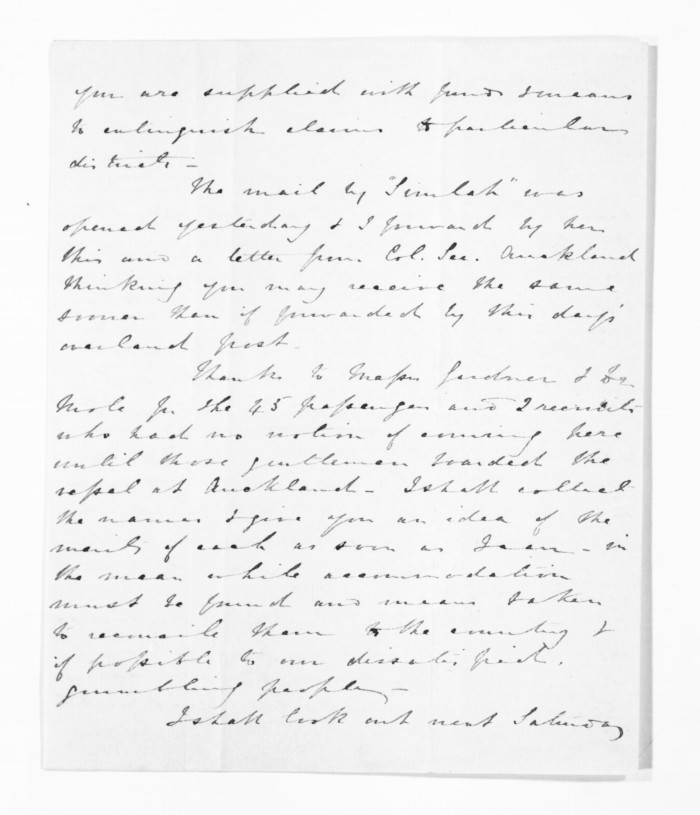 you are supplied with funds & means
to extinguish claims to particular
districts —
The mail by "Simlah" was
opened yesterday & I forward by her
this and a letter from Col. Sec. Auckland
thinking you may receive the same
sooner than if forwarded by this day's
overland post —
Thanks to Messrs Gardner & Dr
Mole for the 45 passengers and 2 recruits
who had no notion of coming here
until those gentlemen boarded the
vessel at Auckland — I shall collect
the names & give you an idea of the
merits of each as soon as I can — in
the mean while accommodation
must be found and means taken
to reconcile them to the country &
if possible to our dissatisfied,
grumbling people —
I shall look out next Saturday